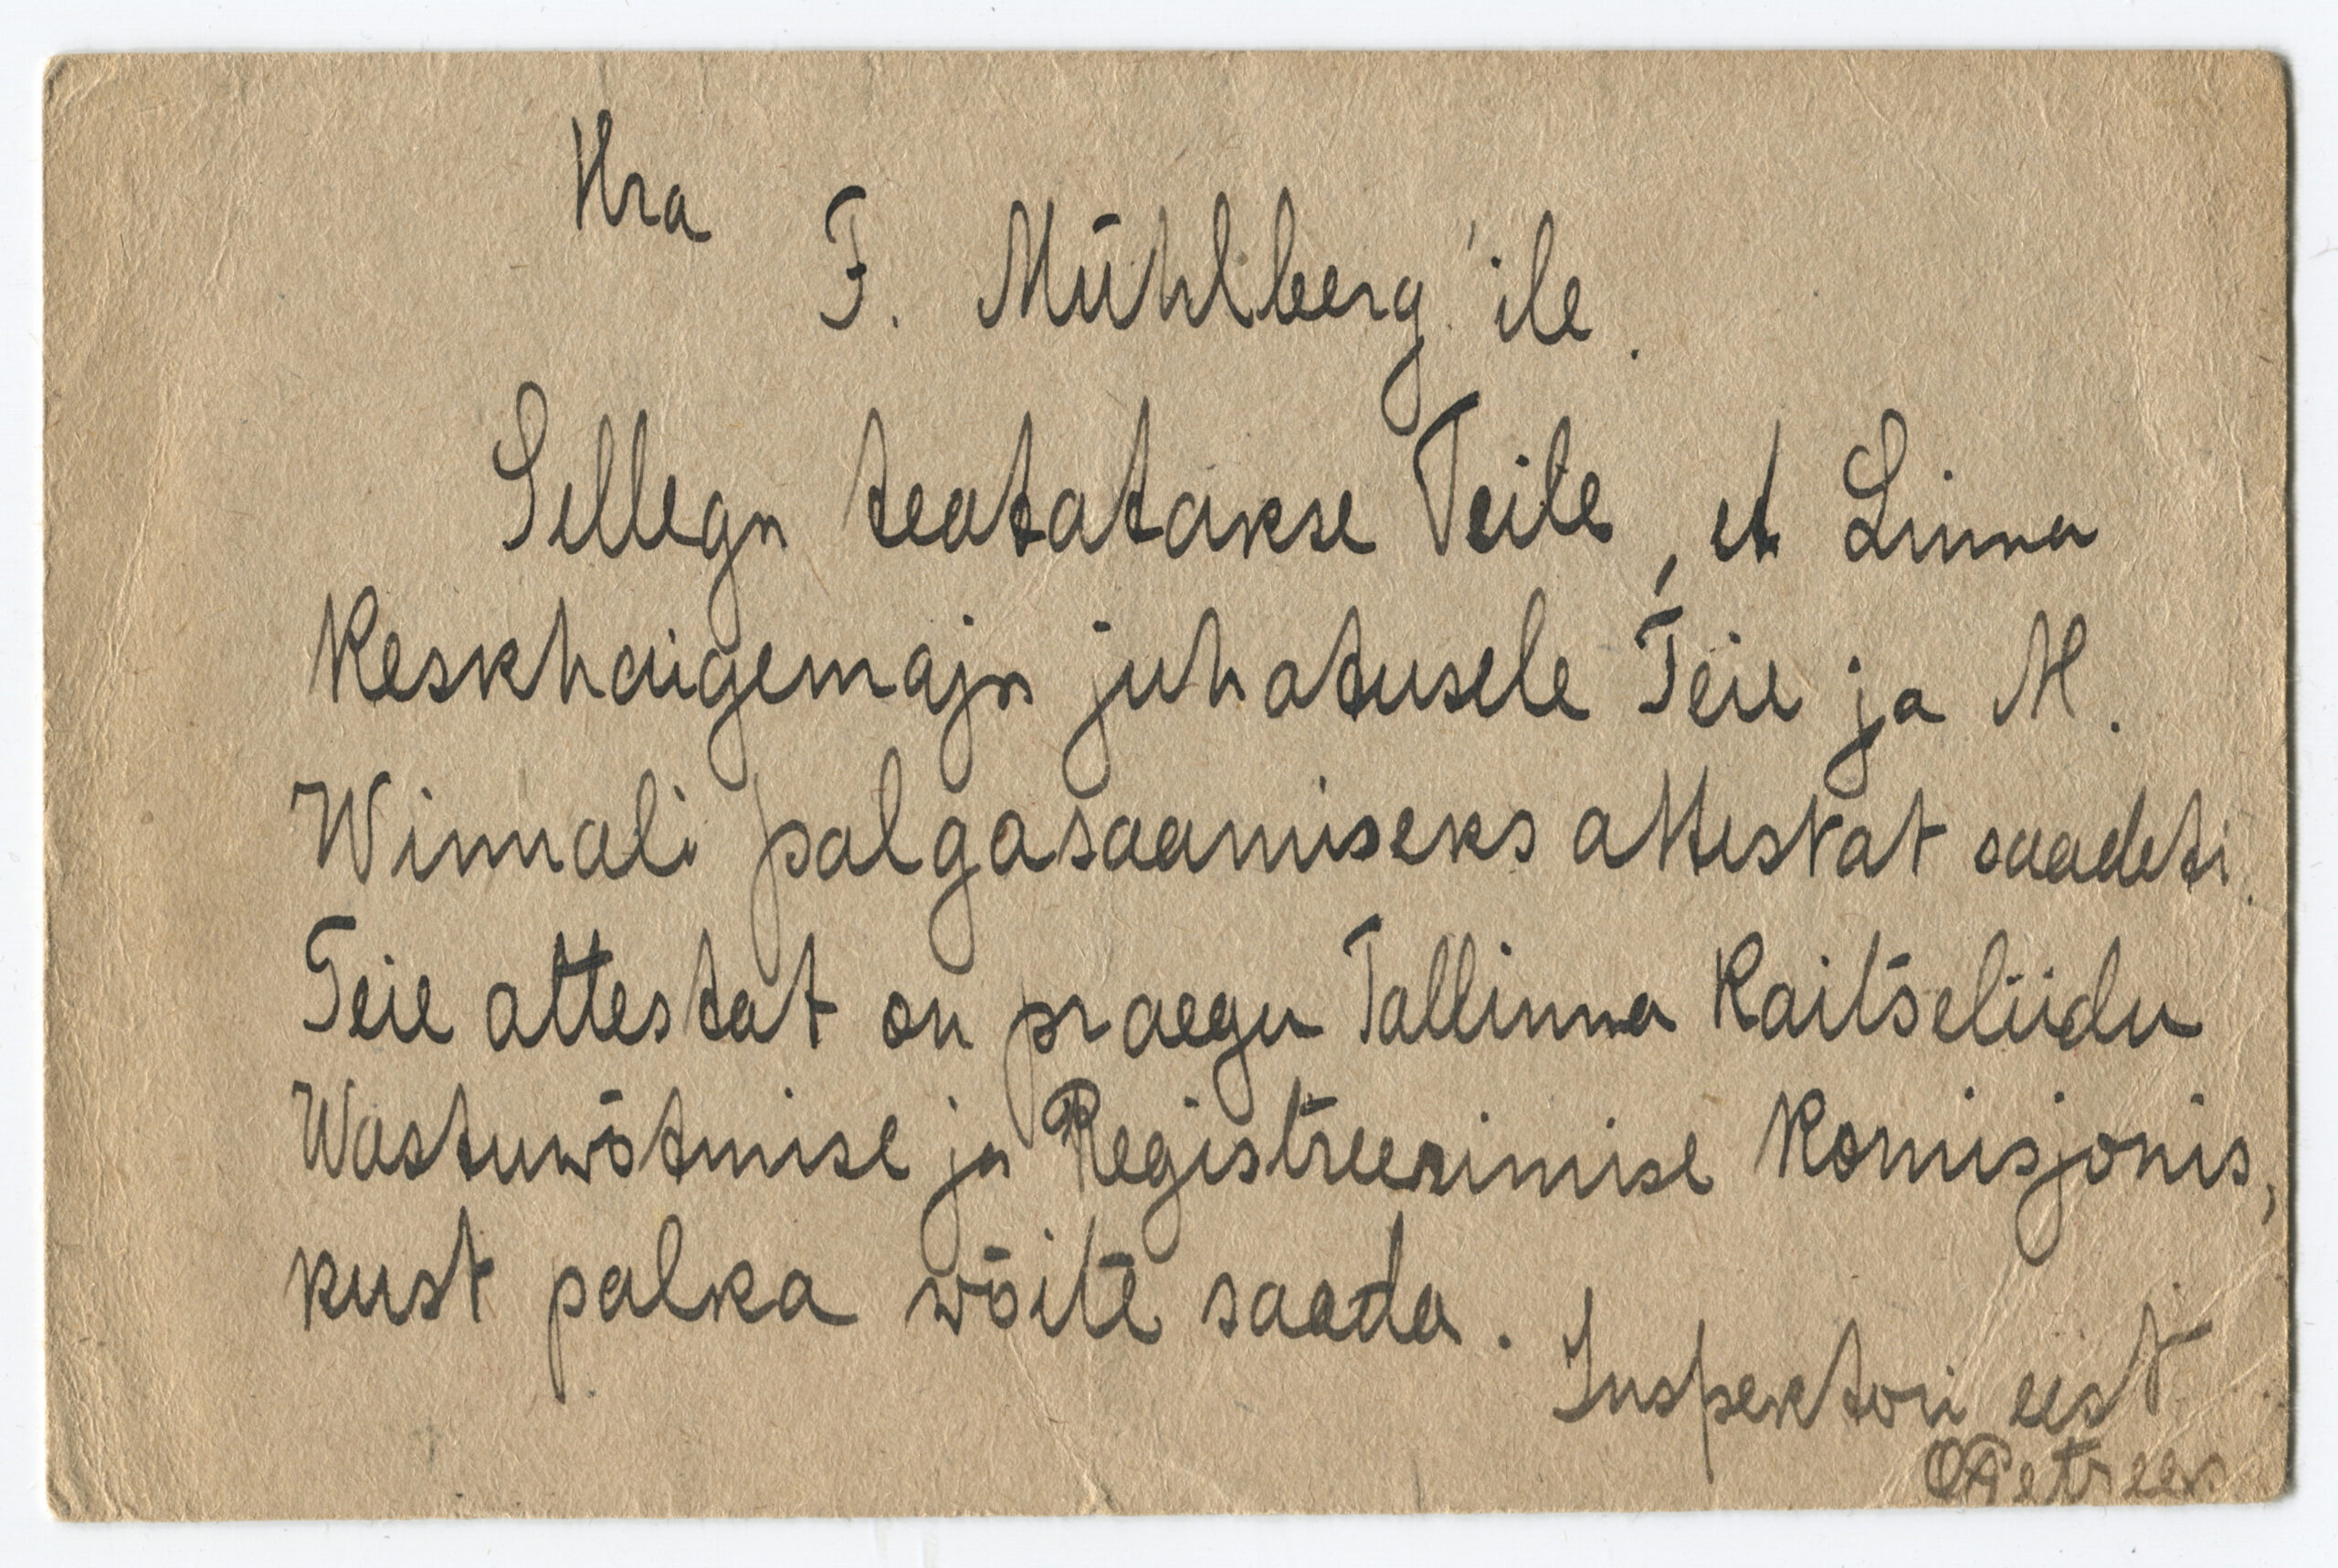 Hra
F. Mühlberg'ile.
Sellega teatatakse Teile, et Linna
Keskhaigemaja juhatusele Teie ja M.
Winnali palgasaamiseks attestat saadeti.
Teie attestat on praegu Tallinna Kaitseliidu
Wastuwõtmise ja Registreerimise Komisjonis,
kust palka wõite saada.
Inspektori eest